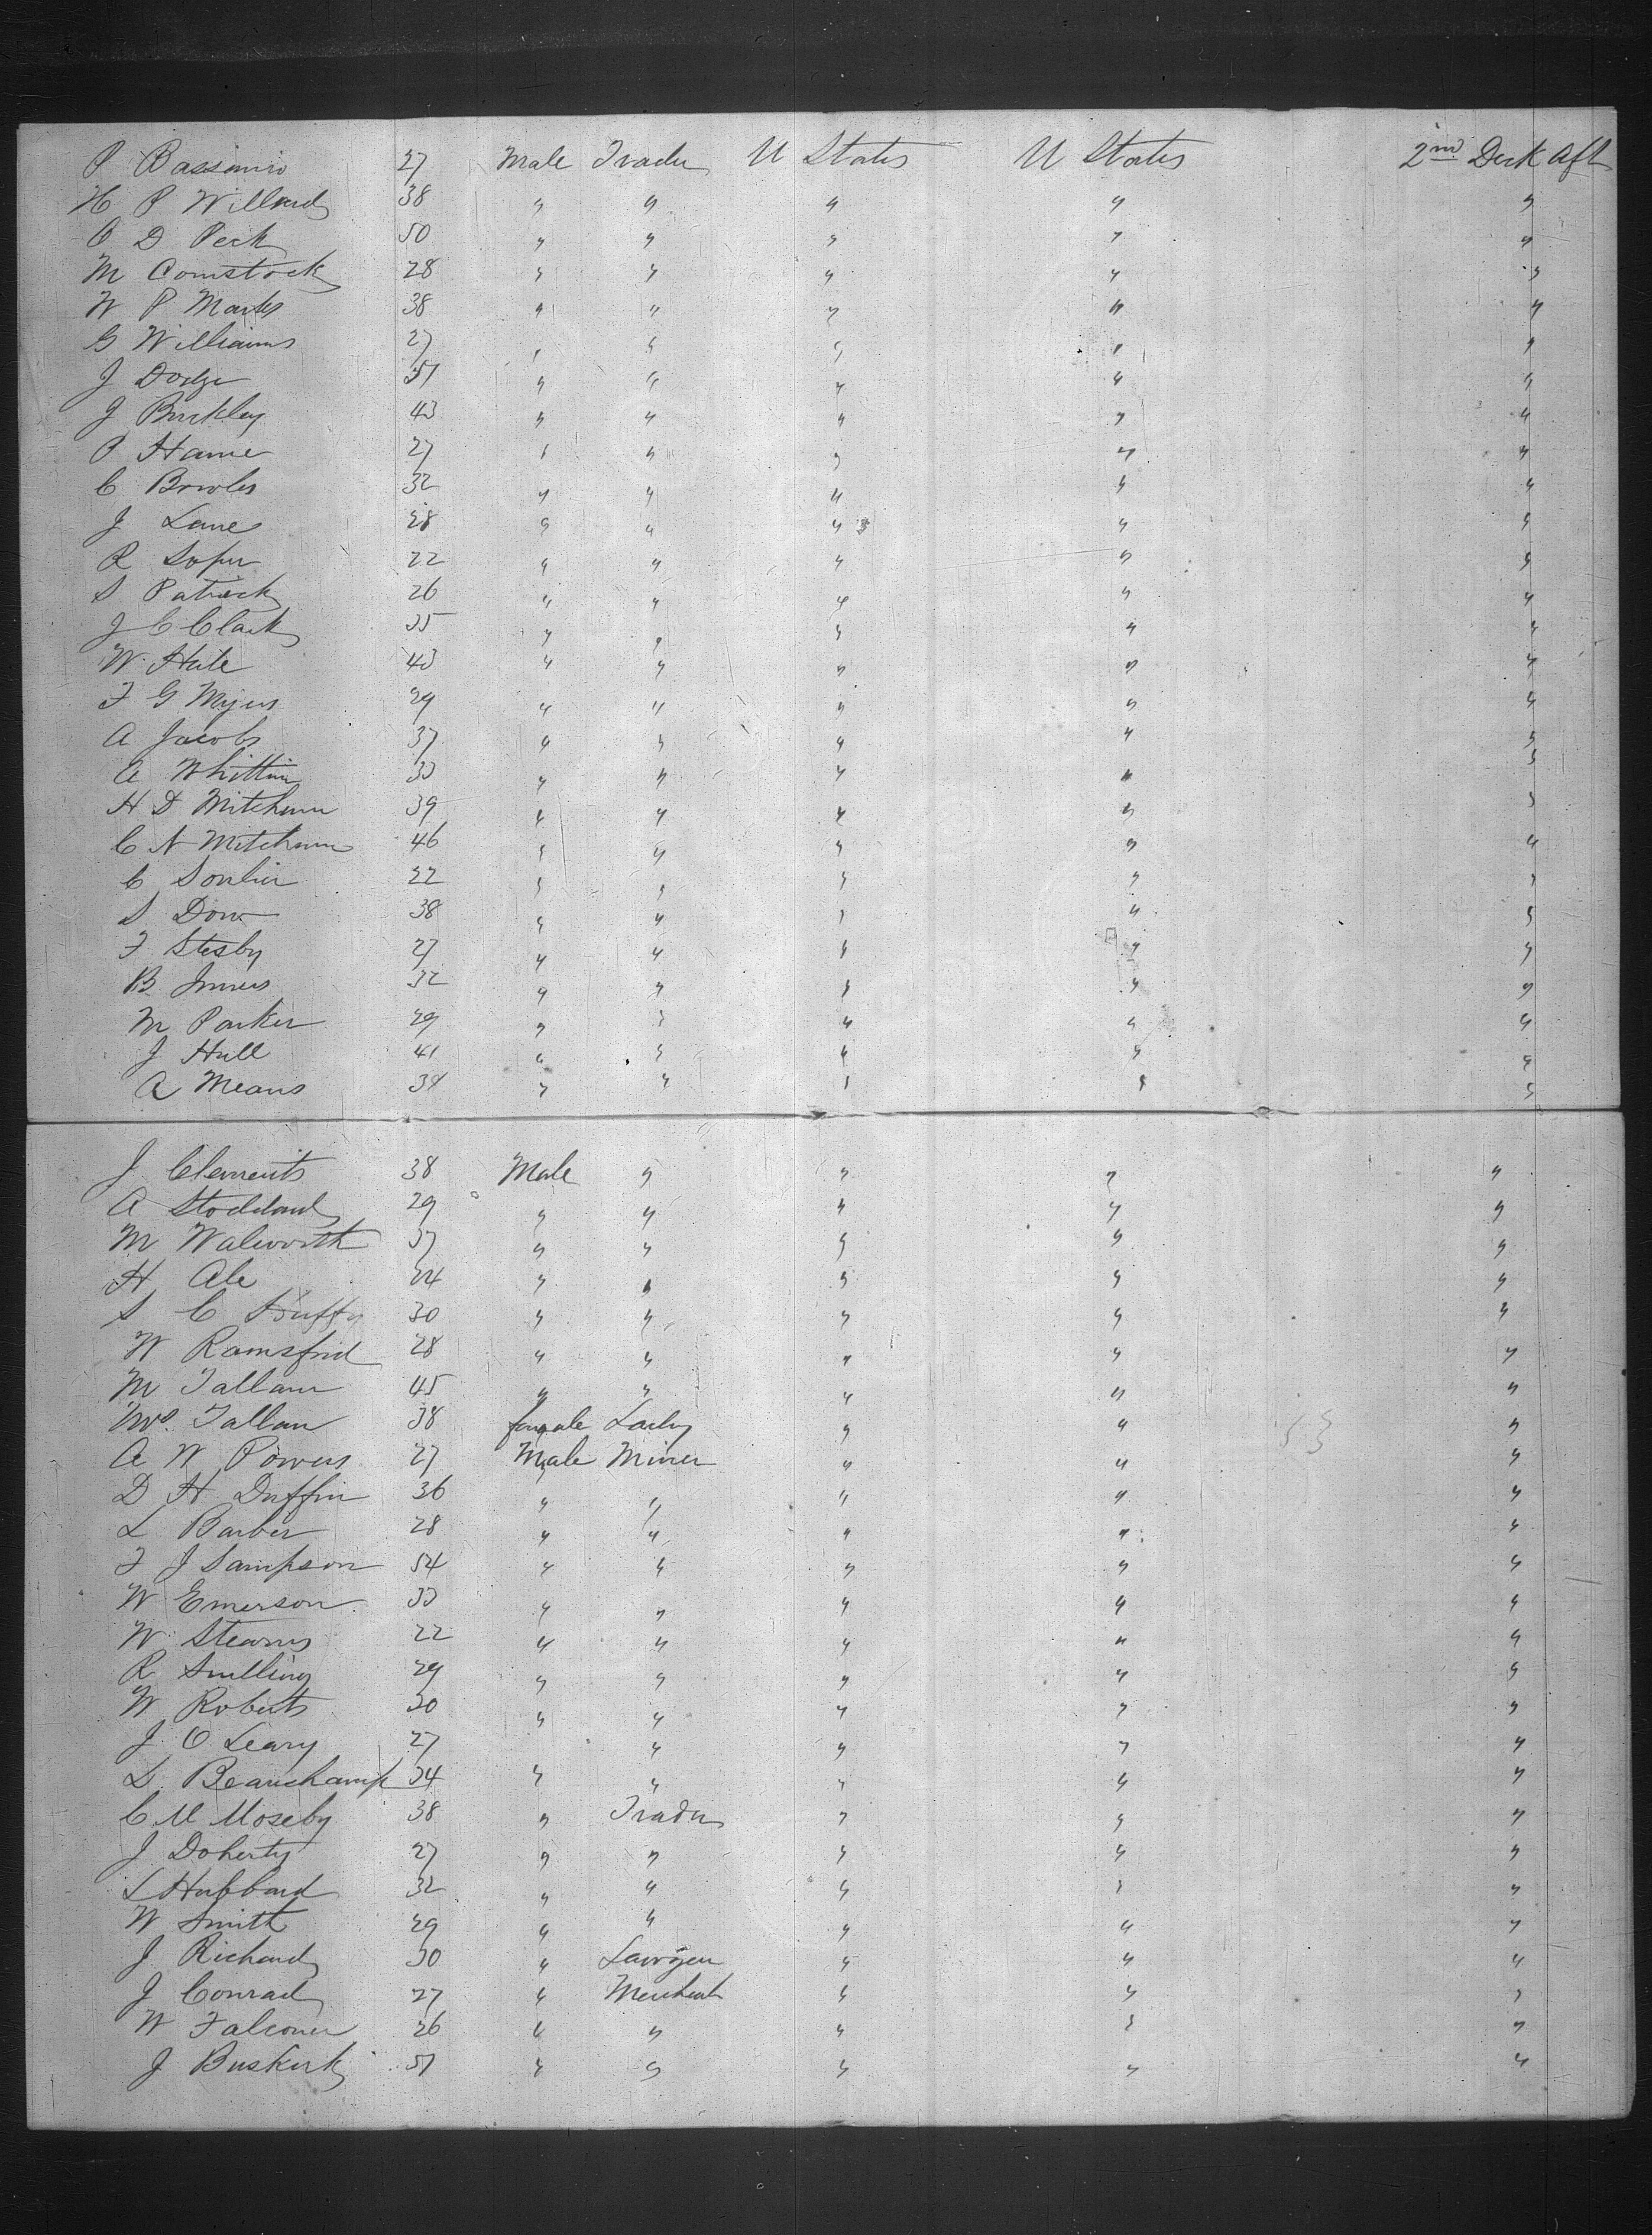 P Bassinio 27 Male Trader U States U States 2nd Deck Aft
H P Willard 38 " " " " "
P D Peck 50 " " " " "
M Comstock 28 " " " " "
W P Marks 38 " " " " "
G Williams 27 " " " " "
J Dodge 37 " " " " "
J Buckley 43 " " " " "
P Hame 27 " " " " "
C Bowles 32 " " " " "
J Lane 28 " " " " "
R Soper 22 " " " " "
S Patrick 26 " " " " "
J C Clark 35 " " " " "
W Hale 43 " " " " "
F G Myers 29 " " " " "
A Jacobs 37 " " " " "
A Whittier 33 " " " " "
H D Mitchum 39 " " " " "
C N Mitchum 46 " " " " "
C Soulier 22 " " " " "
S Dow 38 " " " " "
F Stesby 27 " " " " "
B Innes 32 " " " " "
M Parker 29 " " " " "
J Hull 41 " " " " "
A Means 34 " " " " "
J Clements 38 Male " " " "
A Stoddard 29 " " " " "
M Walworth 37 " " " " "
H Ale 24 " " " " "
S C 30 " " " " "
W Ramsfrid 28 " " " " "
M Tallan 45 " " " " "
Mrs Tallan 38 female Lady " " "
A W Powers 27 Male Miner " " "
D H Duffin 36 " " " " "
L Barber 28 " " " " "
F J Sampson 54 " " " " "
W Emerson 33 " " " " "
W Stearns 22 " " " " "
R Snelling 29 " " " " "
W Roberts 30 " " " " "
J O Leary 27 " " " "
L Beauchamp 34 " " " " "
C M Moseby 38 " Trader " " "
J Doherty 27 " " " " "
L Hubbard 32 " " " " "
W Smith 29 " " " " "
J Richard 30 " Lawyer " " "
J Conrad 27 " Merchant " " "
W Falconer 26 " " " " "
J Buskirk 37 " " " " "